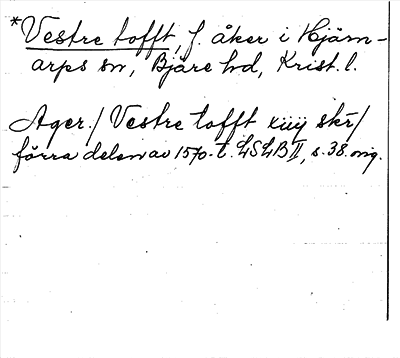 *Vestre tofft, f. åker i Hjärn-
arps sn, Bjäre hd, Krist. l.
Ager./ Vestre tofft xiiij skr/
förra delen av 1570-t. LSLB II, s. 38. orig.